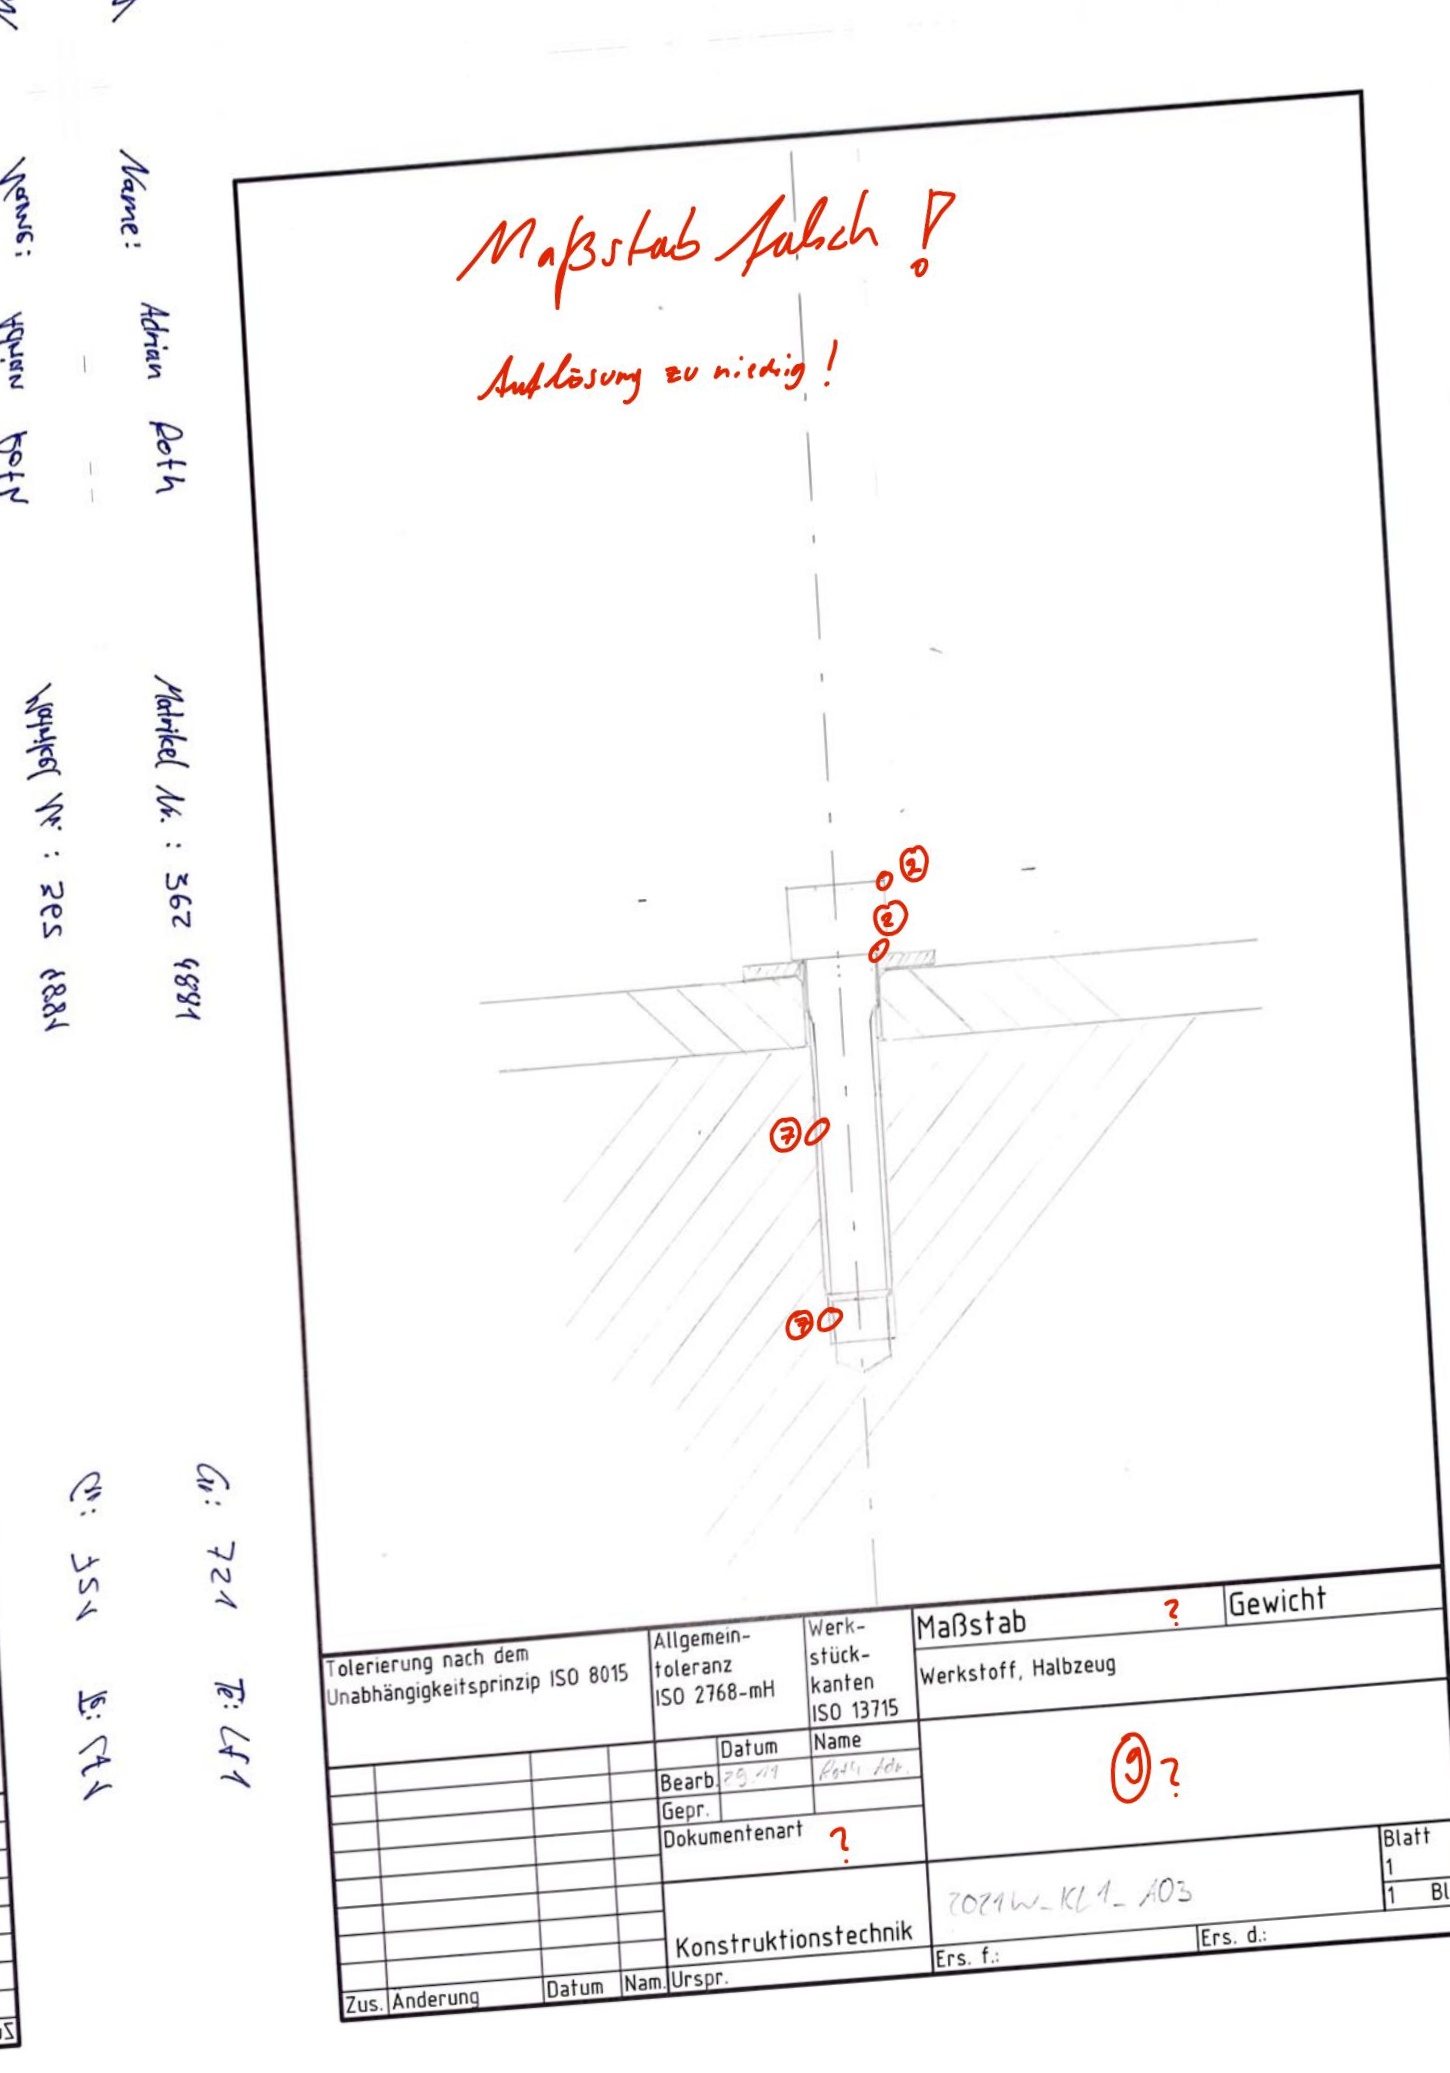 Name: Adrian Roth Matrikel Nr.: 362 4881 Gr: 721 Te: LA1
Maßstab falsch!
Auflösung zu niedrig!
2
2
7
7
Tolerierung nach dem
Unabhängigkeitsprinzip ISO 8015
Allgemein-
toleranz
ISO 2768-mH
Werk-
stück-
kanten
ISO 13715
Maßstab ?
Gewicht
Werkstoff, Halbzeug
Datum Name
Bearb. 29.11 Roth Adr.
Gepr.
9?
Dokumentenart ?
Konstruktionstechnik
2021W_KL1_A03
Blatt
1
1 Bl
Zus. Änderung Datum Nam. Urspr.
Ers. f.: Ers. d.: